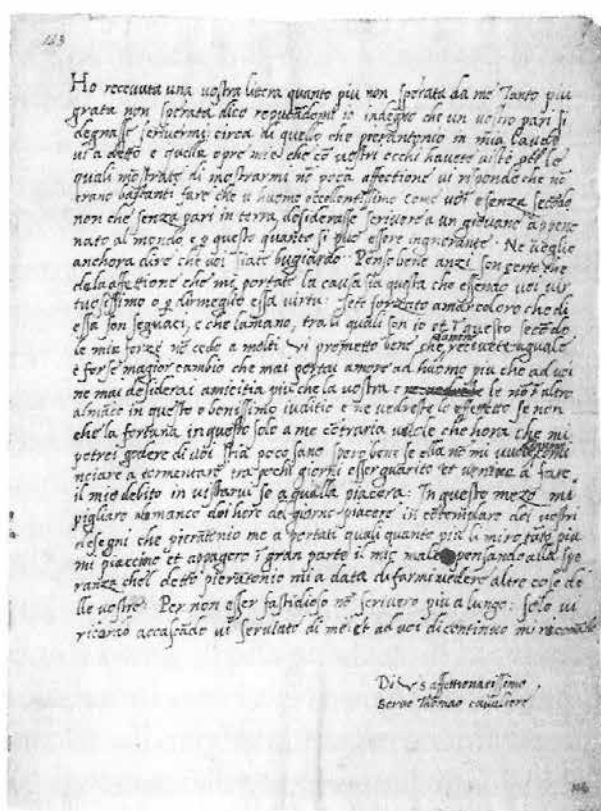 113
Ho recevuta una vostra littera quanto piu non sperata da me Tanto piu
grata non sperata dico reputãdomi io indegno che un vostro pari si
degnasse scrivermi: circa di quello che pierantonio in mia laude
vi a detto e quelle opre mie che cõ vostri occhi havete viste p le
quali mostrate di mostrarmi nõ poca affectione vi rispondo che nõ
erano bastanti fare che u huomo eccellentissimo come voi e senza secõdo
non che senza pari in terra, desiderasse scrivere a un giovane appena
nato al mondo e p questo quanto si puo essere ignorante. Ne voglio
anchora dire che voi siate bugiardo. Penso bene anzi son certo che
dela affectione che mi portate la causa sia questa che essendo voi vir
tuosissimo o p dir meglio essa virtu: sete forzato amar coloro che di
essa son seguaci, e che lamano, tra li quali son io et ĩ questo secõdo
le mie forze nõ cedo a molti Vi prometto bene che da mi receverete uguale
e forse magior cambio che mai portai amore ad huomo piu che ad voi
ne mai desiderai amicitia piu che la vostra e le nõ ĩ altro
almãco in questo o benissimo iuditio e ne vedreste lo effetto se non
che la fortuna in questo solo a me cõtraria vole che hora che mi
potrei godere di voi stia poco sano spero bene se ella nõ mi vuole comi
nciare a tormentare tra pochi giorni esser guarito et venire a fare
il mio debito in visitarvi se a quella piacera: In questo mezo mi
pigliaro almanco doi hore del giorno piacere in cõtemplare doi vostri
desegni che pierãtonio me a portati quali quanto piu li miro tãto piu
mi piacciono et appagero ĩ gran parte il mio male pensando alla spe
ranza chel detto pierãtonio mi a data di farmi vedere altre cose de
lle vostre. Per non esser fastidioso nõ scrivero piu a lungo: solo vi
ricordo accascãdo vi servilate di me et ad voi di continuo mi recomãdo
Di V S affettionatissimo
Servo Thomao cavaliere